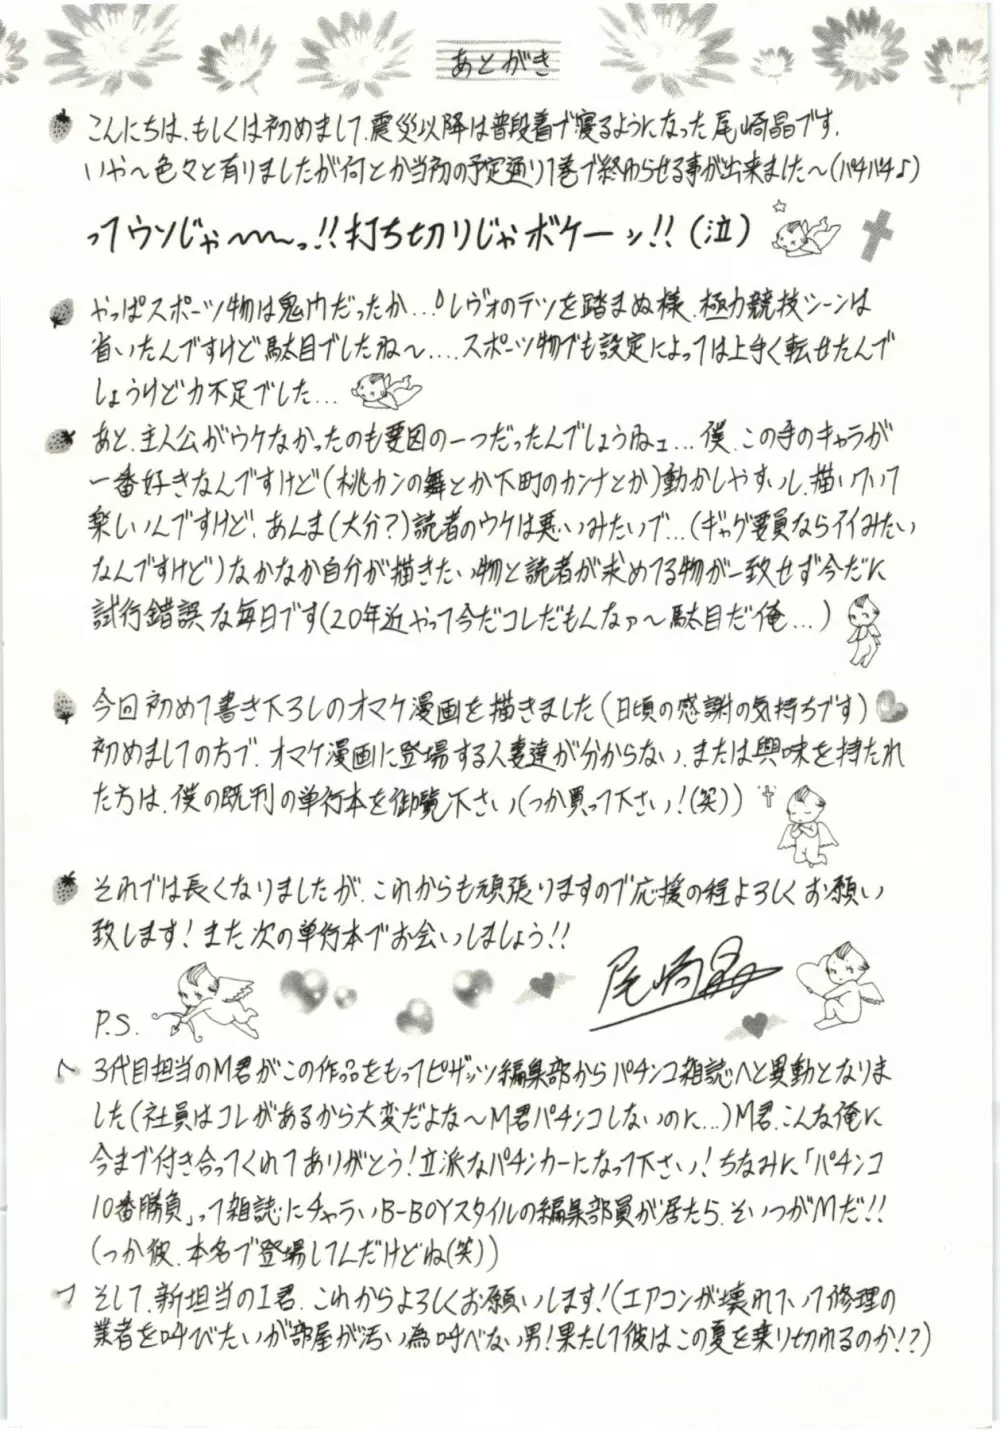 あとがき
こんにちは、もしくは初めまして、震災以降は普段着で寝るようになった尾崎晶です.
いや〜色々と有りましたが何とか当初の予定通り1巻で終わらせる事が出来ました〜(パチパチ♪)
ってウソじゃ〜〜〜っ!!打ち切りじゃボケーッ!!(泣)
やっぱスポーツ物は鬼門だったか...!レヴォのテツを踏まぬ様、極力競技シーンは
省いたんですけど駄目でしたね〜....スポーツ物でも設定によっては上手く転せたんで
しょうけど力不足でした...
あと、主人公がウケなかったのも要因の一つだったんでしょうねェ...僕、この手のキャラが
一番好きなんですけど(桃カンの舞とか下町のカンナとか)動かしやすいし、描いていて
楽しいんですけど、あんま(大分?)読者のウケは悪いみたいで...(ギャグ要員ならイイみたい
なんですけど)なかなか自分が描きたい物と読者が求めてる物が一致せず今だに
試行錯誤な毎日です(20年近やって今だコレだもんなァ〜駄目だ俺...)
今回初めて書き下ろしのオマケ漫画を描きました(日頃の感謝の気持ちです)
初めましての方で、オマケ漫画に登場する人妻達が分からない、または興味を持たれ
た方は、僕の既刊の単行本を御覧下さい(つか買って下さい!(笑))
それでは長くなりましたが、これからも頑張りますので応援の程よろしくお願い
致します!また次の単行本でお会いしましょう!!
尾崎晶
P.S.
3代目担当のM君がこの作品をもってピザッツ編集部からパチンコ雑誌へと異動となりま
した(社員はコレがあるから大変だよな〜M君パチンコしないのに...)M君、こんな俺に
今まで付き合ってくれてありがとう!立派なパチンカーになって下さい!ちなみに「パチンコ
10番勝負」って雑誌にチャラいB-BOYスタイルの編集部員が居たら、そいつがMだ!!
(つか彼、本名で登場してんだけどね(笑))
そして、新担当のI君、これからよろしくお願いします!(エアコンが壊れていて修理の
業者を呼びたいが部屋が汚い為呼べない男!果たして彼はこの夏を乗り切れるのか!?)